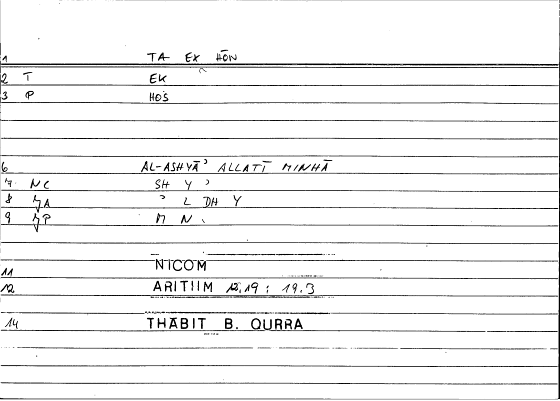 1 TA EX HŌN
2 T EK
3 P HOS
6 AL-ASHYĀʾ ALLATĪ MINHĀ
7 NC SH Y ʾ
8 JA ʾ L DH Y
9 JP M N
11 NICOM
12 ARITIIM 12.19 : 19.3
14 THĀBIT B. QURRA